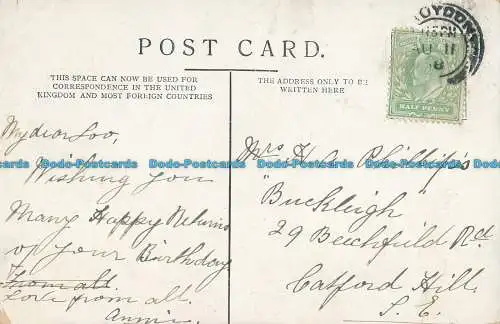 POST CARD.
THIS SPACE CAN NOW BE USED FOR
CORRESPONDENCE IN THE UNITED
KINGDOM AND MOST FOREIGN COUNTRIES
THE ADDRESS ONLY TO BE
WRITTEN HERE
HALF PENNY
My dear Loo,
Wishing you
Many Happy Returns
of your Birthday
From all.
Love from all.
Annie
Mrs H A Phillips
"Buckleigh"
29 Beechfield Rd
Catford Hill
S. E.
Dodo-Postcards Dodo-Postcards Dodo-Postcards Dodo-Postcards
Dodo-Postcards Dodo-Postcards Dodo-Postcards Dodo-Postcards